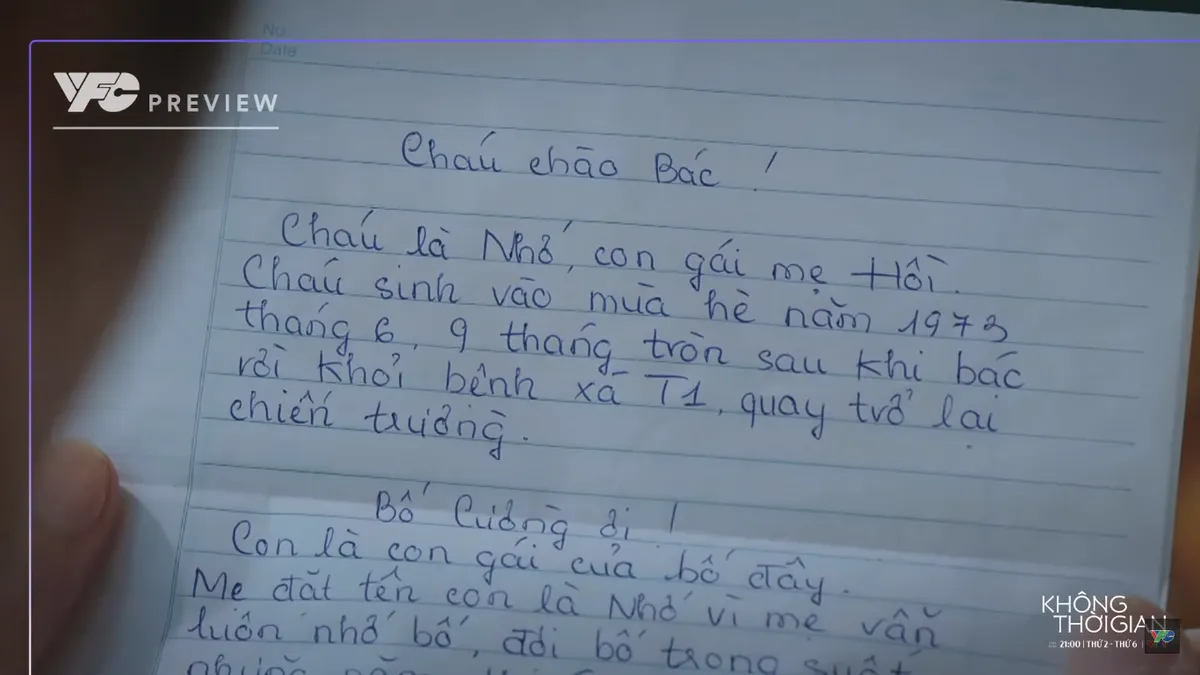 No.
Date
VFC PREVIEW
Cháu chào Bác !
Cháu là Nhớ, con gái mẹ Hồi.
Cháu sinh vào mùa hè năm 1973
tháng 6, 9 tháng tròn sau khi bác
rời khỏi bệnh xá T1, quay trở lại
chiến trường.
Bố Cường ơi !
Con là con gái của bố đây.
Mẹ đặt tên con là Nhớ vì mẹ vẫn
luôn nhớ bố, đợi bố trong suốt
những năm
KHÔNG
THỜI GIAN
21:00 | THỨ 2 - THỨ 6